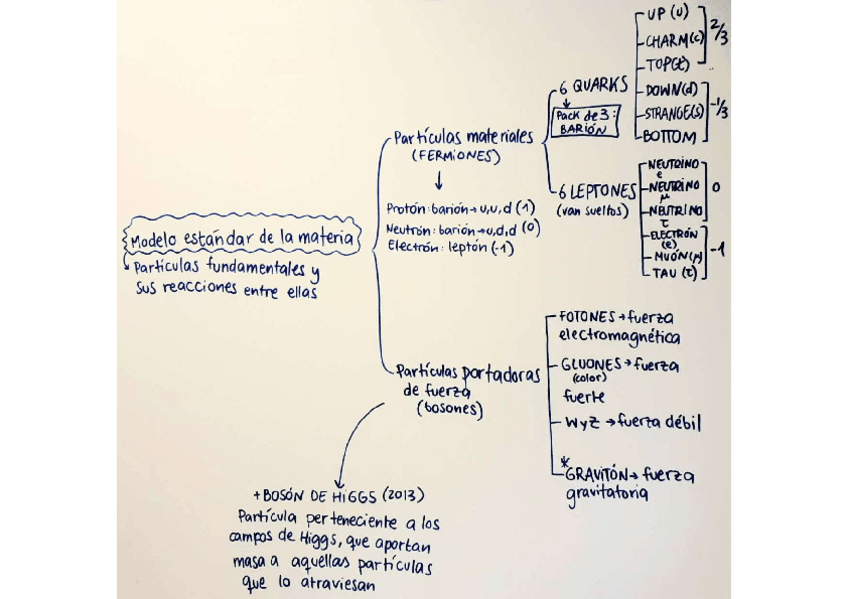 Modelo estándar de la materia
Partículas fundamentales y
sus reacciones entre ellas
Partículas materiales
(FERMIONES)
Protón: barión → u,u,d (1)
Neutrón: barión → u,d,d (0)
Electrón: leptón (-1)
6 QUARKS
Pack de 3:
BARIÓN
UP (u)
CHARM(c)
TOP(t)
2/3
DOWN(d)
STRANGE(s)
BOTTOM
-1/3
6 LEPTONES
(van sueltos)
NEUTRINO
e
NEUTRINO
μ
NEUTRINO
τ
0
ELECTRÓN
(e)
MUÓN(μ)
TAU (τ)
-1
Partículas portadoras
de fuerza
(bosones)
FOTONES → fuerza
electromagnética
GLUONES → fuerza
(color)
fuerte
W y Z → fuerza débil
*
GRAVITÓN → fuerza
gravitatoria
+ BOSÓN DE HiGGS (2013)
Partícula perteneciente a los
campos de Higgs, que aportan
masa a aquellas partículas
que lo atraviesan